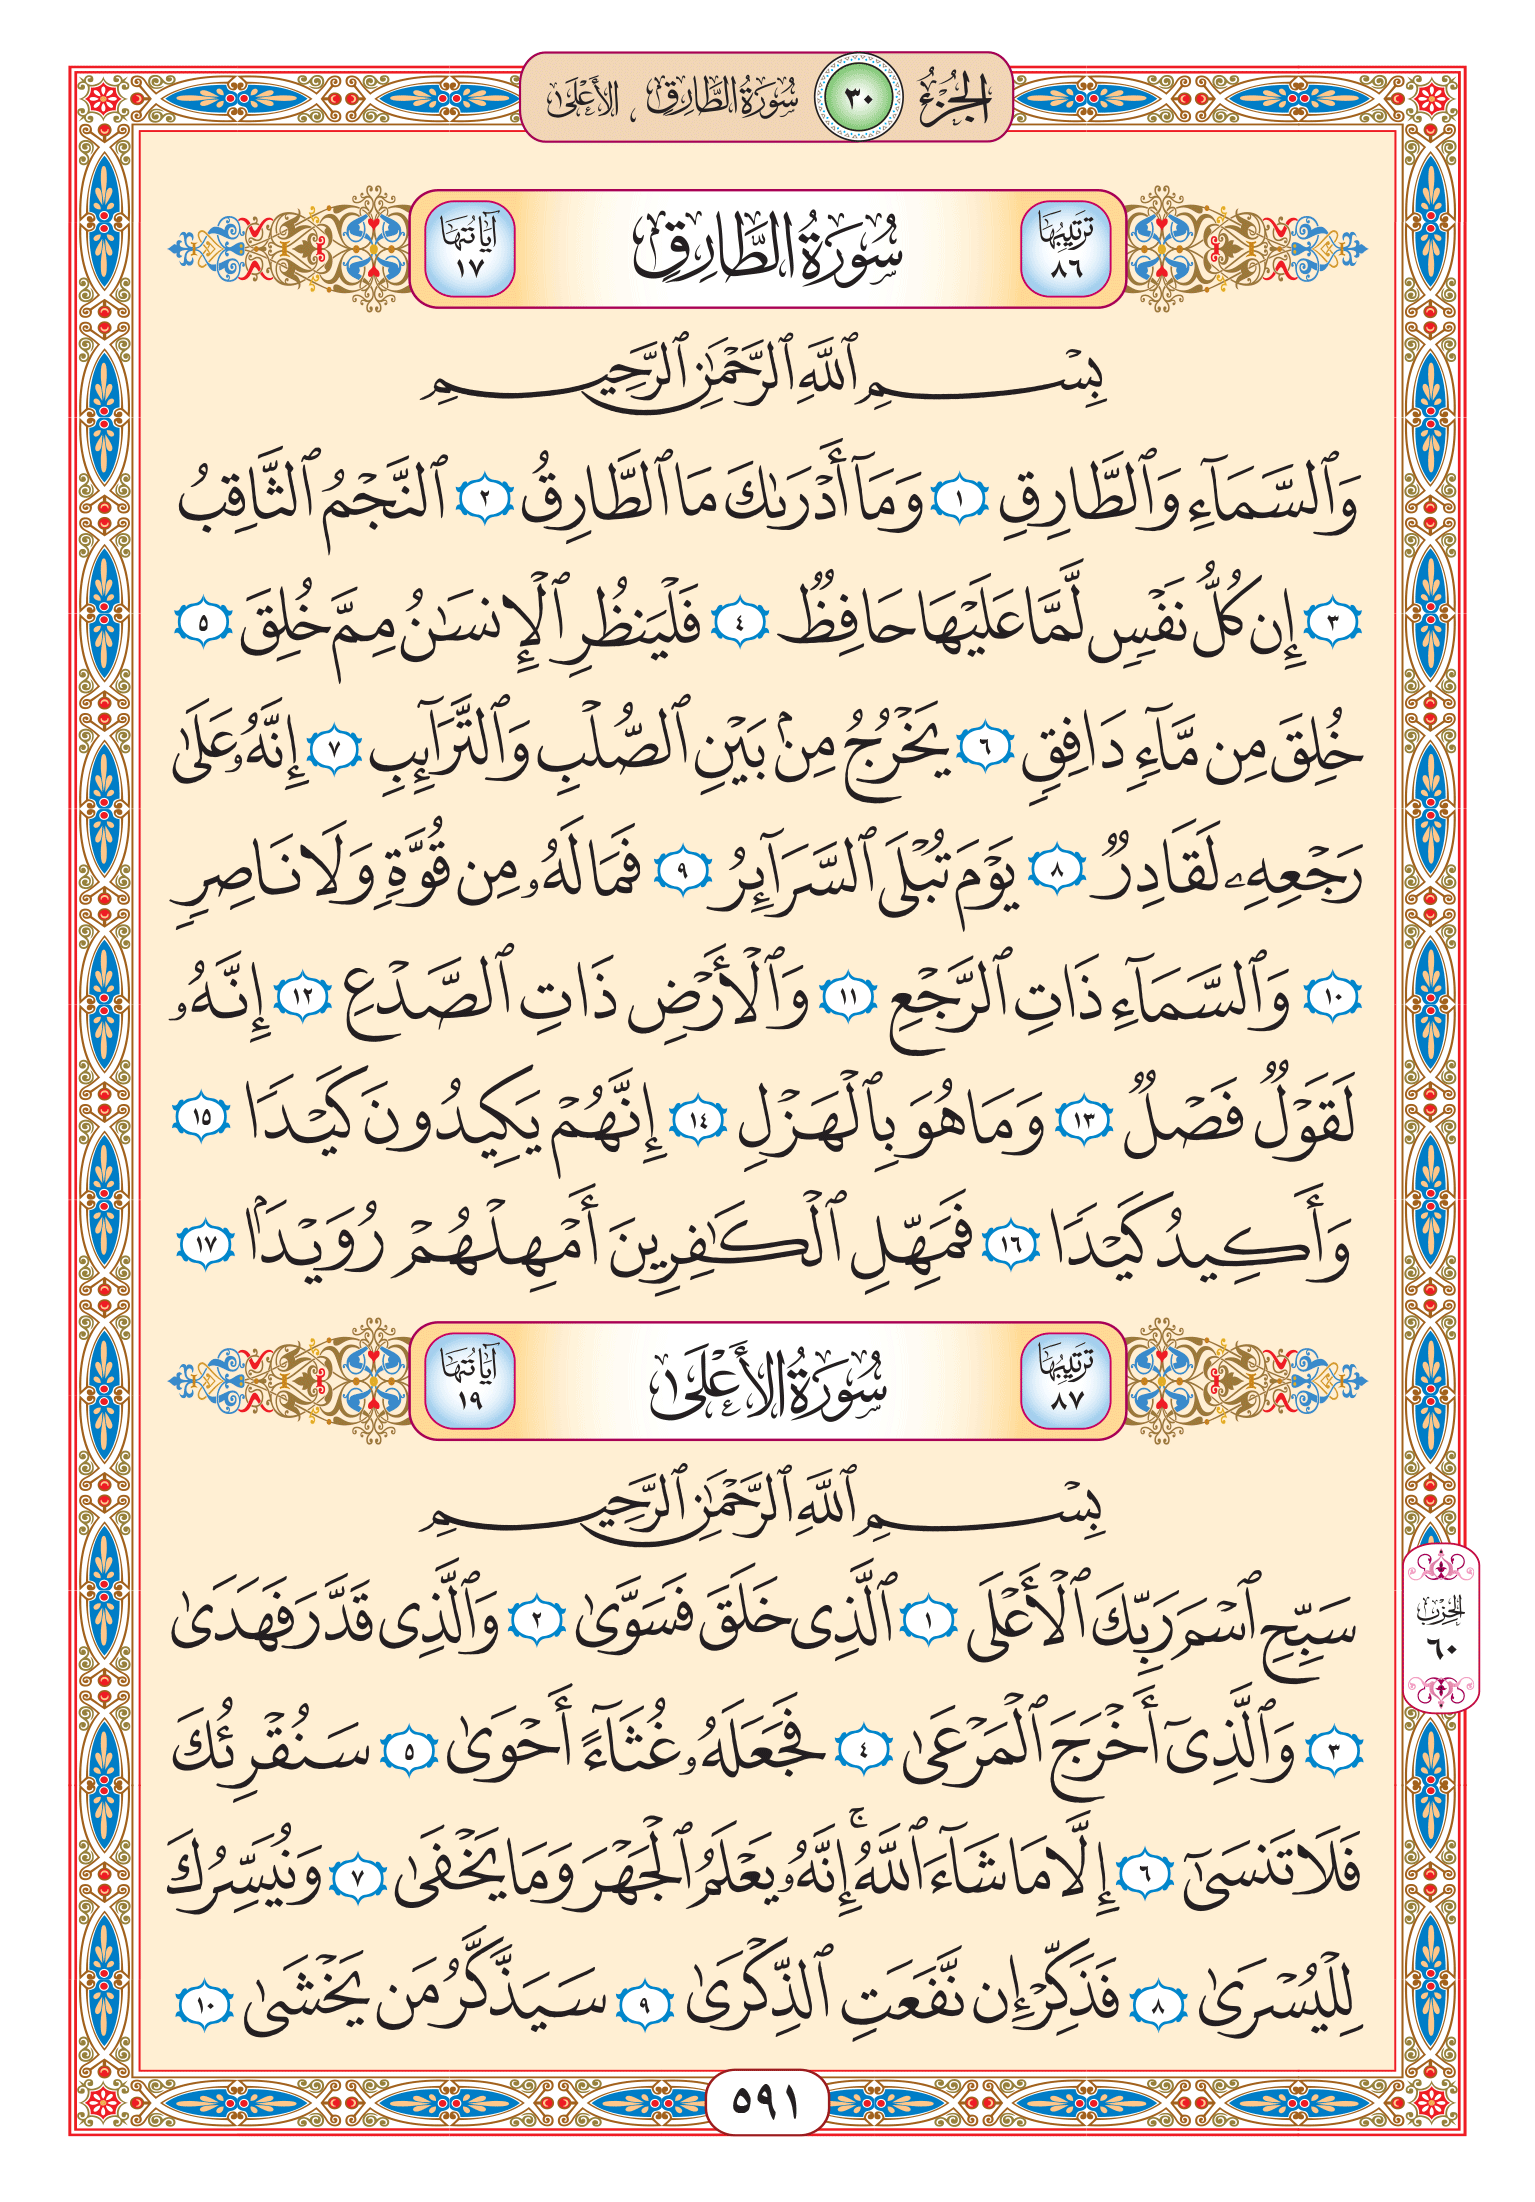 الجزء ٣٠ سورة الطارق ، الأعلى
ترتيبها ٨٦ سُورَةُ الطَّارِقِ آياتها ١٧
بِسْمِ ٱللَّهِ ٱلرَّحْمَٰنِ ٱلرَّحِيمِ
وَٱلسَّمَآءِ وَٱلطَّارِقِ ١ وَمَآ أَدْرَىٰكَ مَا ٱلطَّارِقُ ٢ ٱلنَّجْمُ ٱلثَّاقِبُ
٣ إِن كُلُّ نَفْسٍ لَّمَّا عَلَيْهَا حَافِظٌ ٤ فَلْيَنظُرِ ٱلْإِنسَٰنُ مِمَّ خُلِقَ ٥
خُلِقَ مِن مَّآءٍ دَافِقٍ ٦ يَخْرُجُ مِنۢ بَيْنِ ٱلصُّلْبِ وَٱلتَّرَآئِبِ ٧ إِنَّهُۥ عَلَىٰ
رَجْعِهِۦ لَقَادِرٌ ٨ يَوْمَ تُبْلَى ٱلسَّرَآئِرُ ٩ فَمَا لَهُۥ مِن قُوَّةٍ وَلَا نَاصِرٍ
١٠ وَٱلسَّمَآءِ ذَاتِ ٱلرَّجْعِ ١١ وَٱلْأَرْضِ ذَاتِ ٱلصَّدْعِ ١٢ إِنَّهُۥ
لَقَوْلٌ فَصْلٌ ١٣ وَمَا هُوَ بِٱلْهَزْلِ ١٤ إِنَّهُمْ يَكِيدُونَ كَيْدًا ١٥
وَأَكِيدُ كَيْدًا ١٦ فَمَهِّلِ ٱلْكَٰفِرِينَ أَمْهِلْهُمْ رُوَيْدَۢا ١٧
ترتيبها ٨٧ سُورَةُ الأَعْلَىٰ آياتها ١٩
بِسْمِ ٱللَّهِ ٱلرَّحْمَٰنِ ٱلرَّحِيمِ
سَبِّحِ ٱسْمَ رَبِّكَ ٱلْأَعْلَى ١ ٱلَّذِى خَلَقَ فَسَوَّىٰ ٢ وَٱلَّذِى قَدَّرَ فَهَدَىٰ
٣ وَٱلَّذِىٓ أَخْرَجَ ٱلْمَرْعَىٰ ٤ فَجَعَلَهُۥ غُثَآءً أَحْوَىٰ ٥ سَنُقْرِئُكَ
فَلَا تَنسَىٰٓ ٦ إِلَّا مَا شَآءَ ٱللَّهُ ۚ إِنَّهُۥ يَعْلَمُ ٱلْجَهْرَ وَمَا يَخْفَىٰ ٧ وَنُيَسِّرُكَ
لِلْيُسْرَىٰ ٨ فَذَكِّرْ إِن نَّفَعَتِ ٱلذِّكْرَىٰ ٩ سَيَذَّكَّرُ مَن يَخْشَىٰ ١٠
الحزب ٦٠
٥٩١